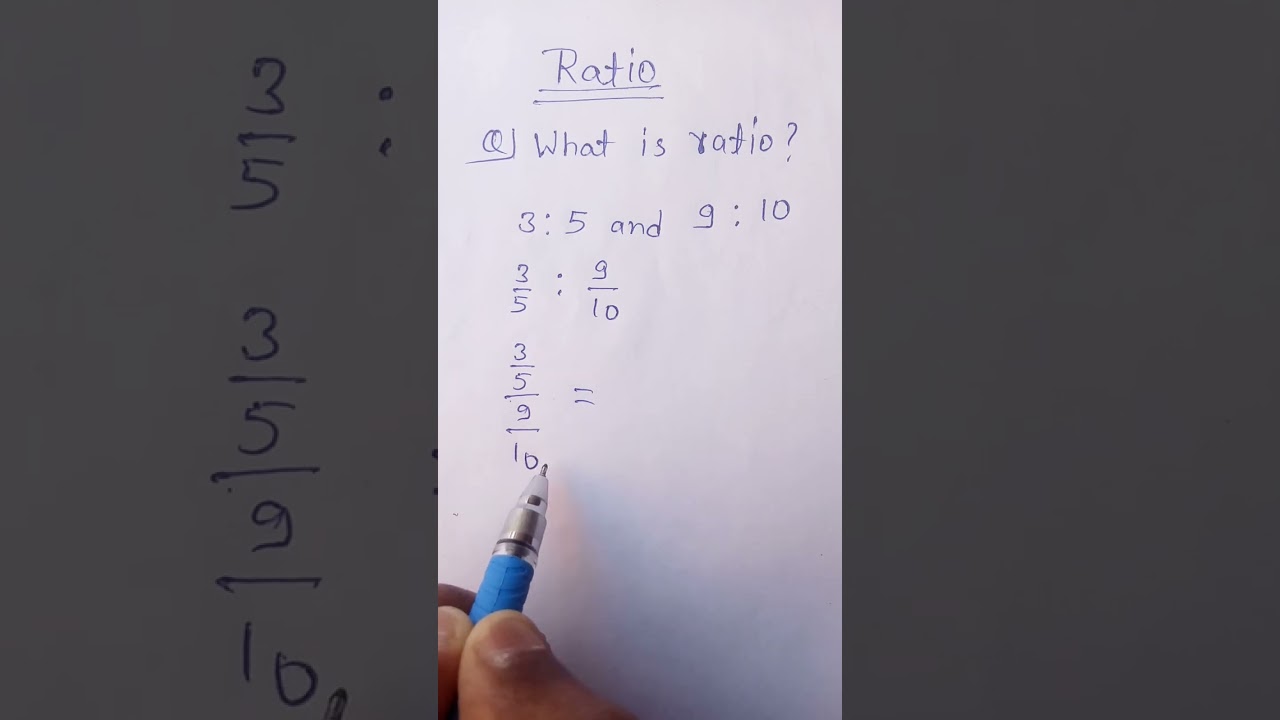 Ratio
Q) What is ratio?
3 : 5 and 9 : 10
3/5 : 9/10
3/5/9/10 =